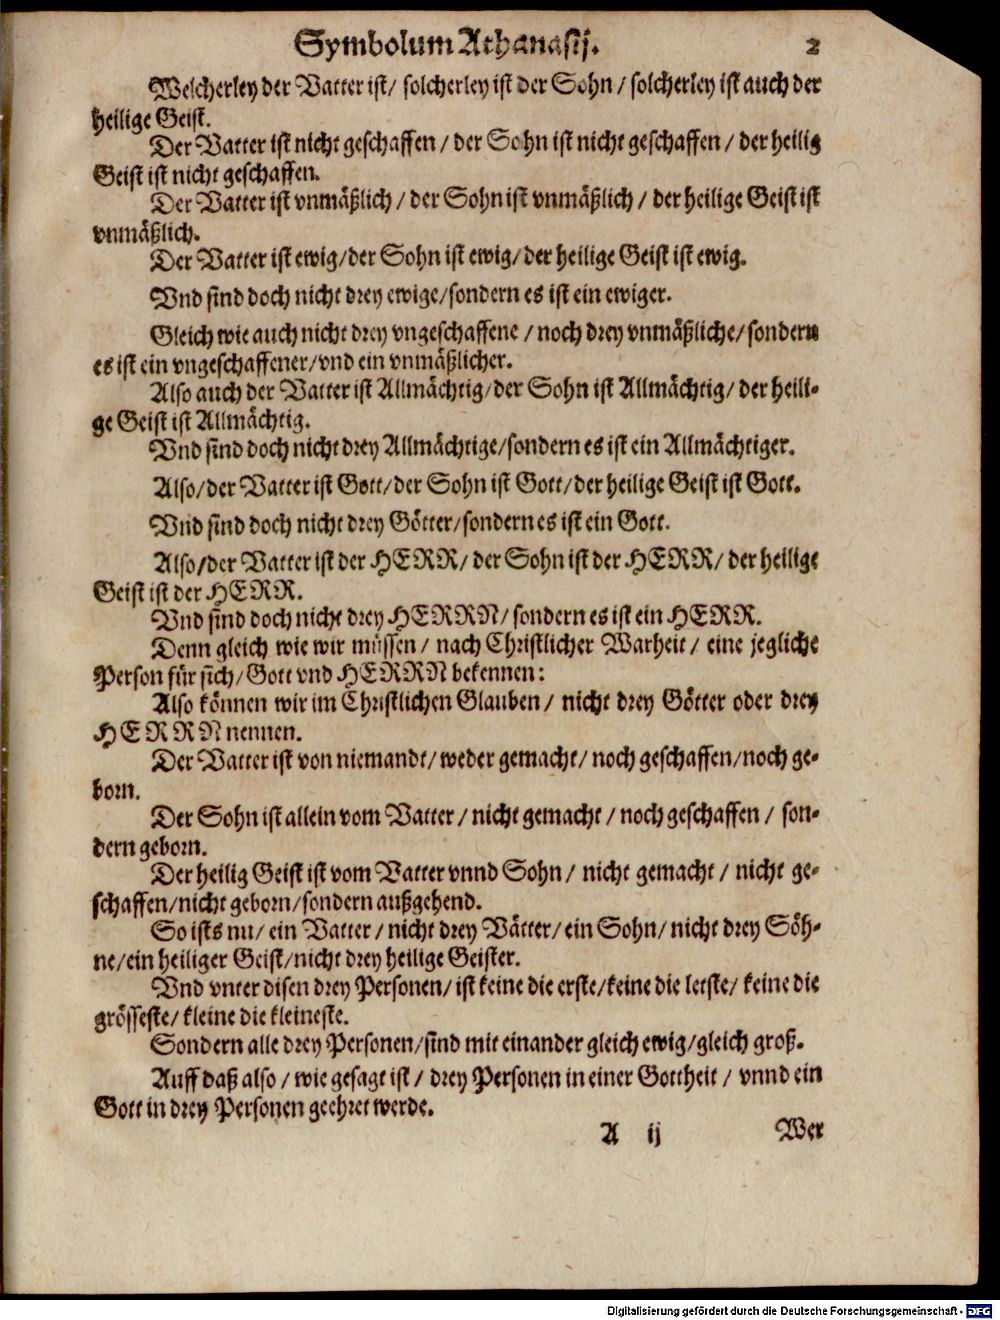 Symbolum Athanasij. 2
Welcherley der Vatter ist/ solcherley ist der Sohn / solcherley ist auch der
heilige Geist.
Der Vatter ist nicht geschaffen / der Sohn ist nicht geschaffen / der heilig
Geist ist nicht geschaffen.
Der Vatter ist vnmäßlich / der Sohn ist vnmäßlich / der heilige Geist ist
vnmäßlich.
Der Vatter ist ewig/der Sohn ist ewig/der heilige Geist ist ewig.
Vnd sind doch nicht drey ewige/sondern es ist ein ewiger.
Gleich wie auch nicht drey vngeschaffene / noch drey vnmäßliche/sondern
es ist ein vngeschaffener/vnd ein vnmäßlicher.
Also auch der Vatter ist Allmächtig/der Sohn ist Allmächtig/ der heili-
ge Geist ist Allmächtig.
Vnd sind doch nicht drey Allmächtige/sondern es ist ein Allmächtiger.
Also/der Vatter ist Gott/der Sohn ist Gott/der heilige Geist ist Gott.
Vnd sind doch nicht drey Götter/sondern es ist ein Gott.
Also/der Vatter ist der HERR/ der Sohn ist der HERR/ der heilige
Geist ist der HERR.
Vnd sind doch nicht drey HERRN/ sondern es ist ein HERR.
Denn gleich wie wir müssen / nach Christlicher Warheit / eine jegliche
Person für sich/Gott vnd HERRN bekennen:
Also können wir im Christlichen Glauben / nicht drey Götter oder drey
HERRN nennen.
Der Vatter ist von niemandt/ weder gemacht/ noch geschaffen/noch ge-
born.
Der Sohn ist allein vom Vatter / nicht gemacht / noch geschaffen / son-
dern geborn.
Der heilig Geist ist vom Vatter vnnd Sohn / nicht gemacht / nicht ge-
schaffen/nicht geborn/sondern außgehend.
So ists nu/ ein Vatter / nicht drey Vätter/ein Sohn/ nicht drey Söh-
ne/ein heiliger Geist/nicht drey heilige Geister.
Vnd vnter disen drey Personen/ ist keine die erste/keine die letste/ keine die
grösseste/ kleine die kleineste.
Sondern alle drey Personen/sind mit einander gleich ewig/gleich groß.
Auff daß also / wie gesagt ist / drey Personen in einer Gottheit / vnnd ein
Gott in drey Personen geehret werde.
A ij Wer
Digitalisierung gefördert durch die Deutsche Forschungsgemeinschaft - DFG